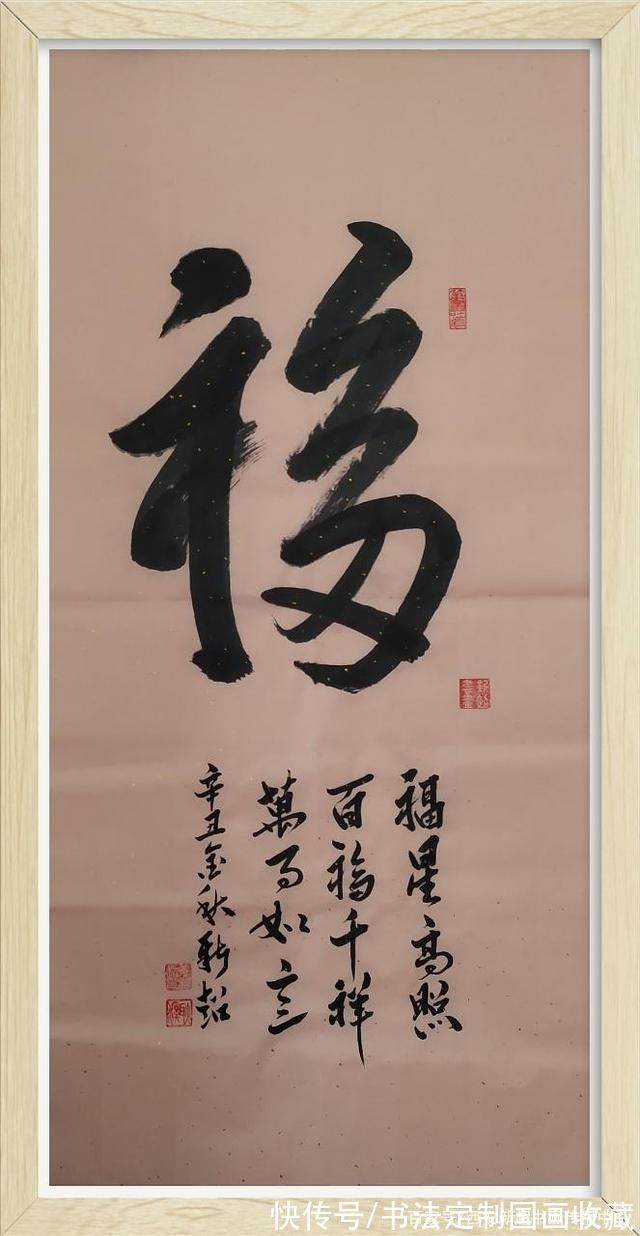 福
福星高照
百福千祥
萬事如意
辛丑金秋
快传号/书法定制国画收藏